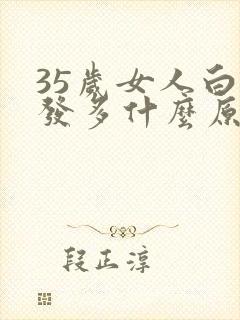 35歲女人白
發多什麼原
段正淳